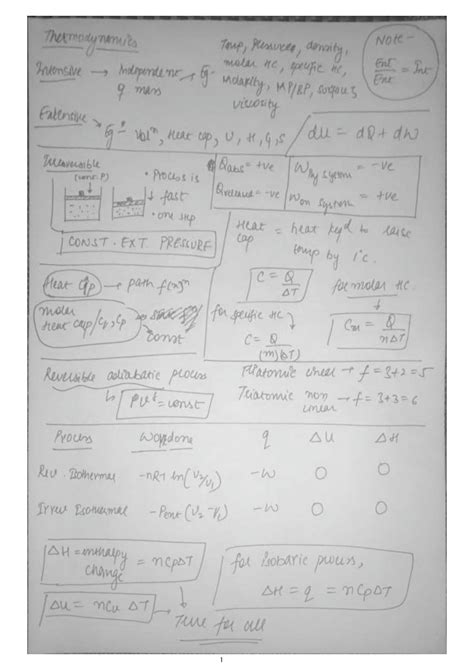 Thermodynamics
Intensive → Independent of mass
Eg- Temp, Pressure, density, molar HC, specific HC, molarity, MP/BP, surface, viscosity
NOTE -
Ext/Ext = Int
Extensive → Eg- Volⁿ, Heat cap, U, H, G, S
dU = dQ + dW
Irreversible
(const. P)
• Process is fast
• one step
CONST. EXT. PRESSURE
Qabs = +ve
Qreleased = -ve
W by system = -ve
W on system = +ve
Heat cap = heat reqd to raise temp by 1°C.
Heat cap → path f(x)ⁿ
molar heat cap/Cv, Cp → const
C = Q/ΔT
for molar HC.
for specific HC
C = Q/(m)(ΔT)
Cm = Q/nΔT
Reversible adiabatic process
PVᵞ = const
Triatomic linear → f = 3+2 = 5
Triatomic non linear → f = 3+3 = 6
Process Workdone q ΔU ΔH
Rev. Isothermal -nRT ln(V2/V1) -W 0 0
Irrev Isothermal -Pext(V2-V1) -W 0 0
ΔH = enthalpy change = nCpΔT
ΔU = nCv ΔT
True for all
for Isobaric process,
ΔH = q = nCpΔT
1